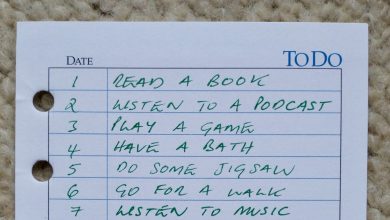 DATE TODO
1 READ A BOOK
2 LISTEN TO A PODCAST
3 PLAY A GAME
4 HAVE A BATH
5 DO SOME JIGSAW
6 GO FOR A WALK
7 LISTEN TO MUSIC